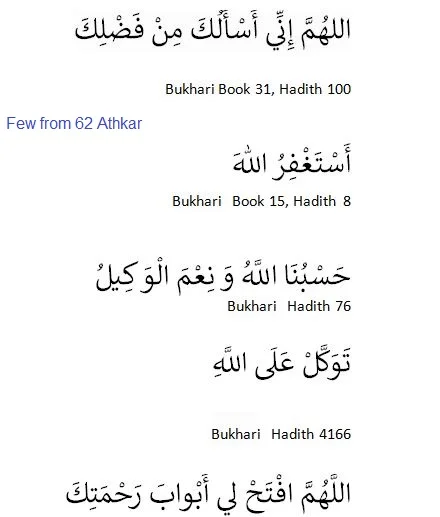 اللهُمَّ إِنِّي أَسْأَلُكَ مِنْ فَضْلِكَ
Bukhari Book 31, Hadith 100
Few from 62 Athkar
أَسْتَغْفِرُ اللهَ
Bukhari Book 15, Hadith 8
حَسْبُنَا اللَّهُ وَنِعْمَ الْوَكِيلُ
Bukhari Hadith 76
تَوَكَّلْ عَلَى اللَّهِ
Bukhari Hadith 4166
اللَّهُمَّ افْتَحْ لي أَبْوابَ رَحْمَتِكَ